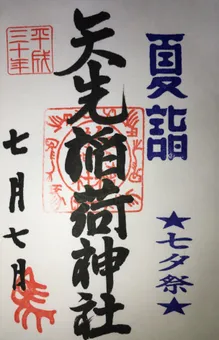 夏詣
★七夕祭★
矢先稲荷神社
平成
三十年
七月七日